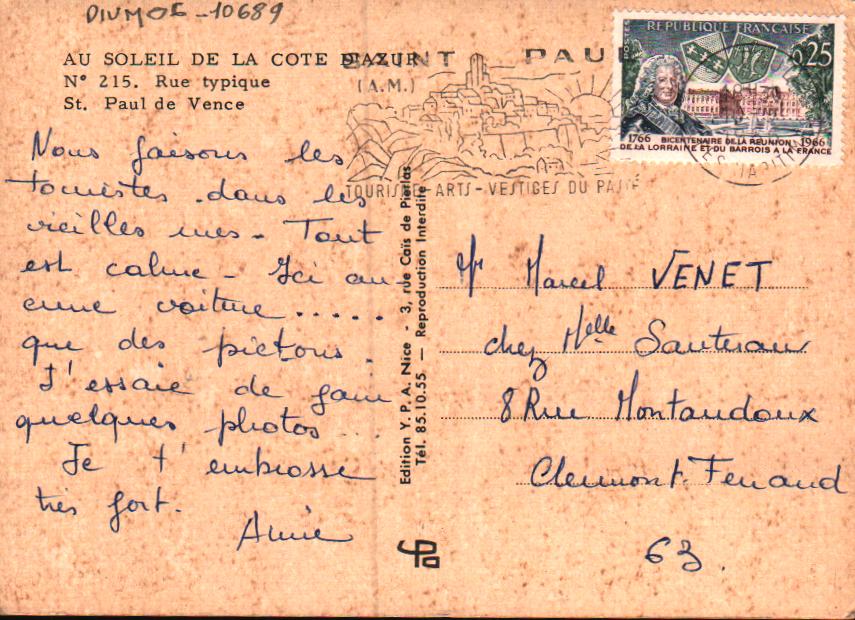 DIVMOE-10689
AU SOLEIL DE LA COTE D'AZUR
N° 215. Rue typique
St. Paul de Vence
SAINT PAUL
(A.M.)
TOURISME ARTS-VESTIGES DU PASSÉ
POSTES
REPUBLIQUE FRANÇAISE
0,25
1766 BICENTENAIRE DE LA REUNION 1966
DE LA LORRAINE ET DU BARROIS A LA FRANCE
Nous faisons les
touristes dans les
vieilles rues - Tout
est calme - Ici au-
cune voiture .....
que des piétons.
J'essaie de faire
quelques photos...
Je t'embrasse
très fort.
Annie
Edition Y. P. A. Nice - 3, rue Caïs de Pierlas
Tél. 85.10.55. — Reproduction Interdite
Mr Marcel VENET
chez Melle Sauterau
8 Rue Montaudoux
Clermont-Ferrand
63.